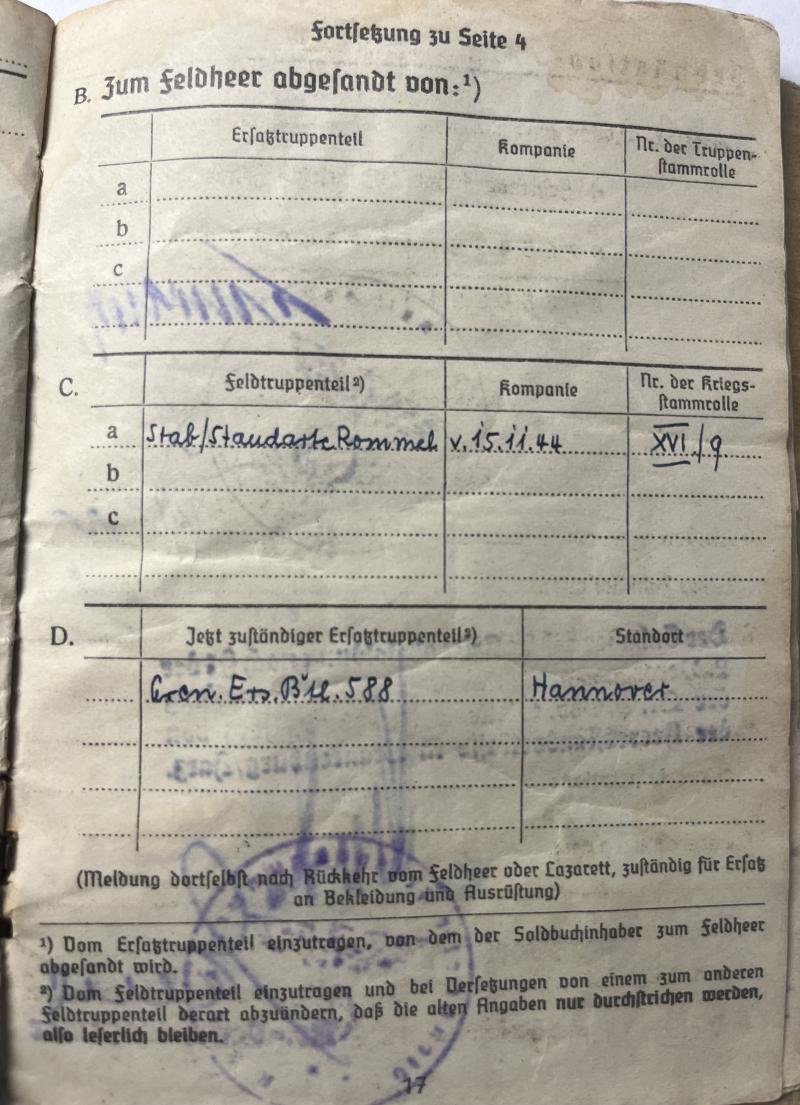 Fortsetzung zu Seite 4
B. Zum Feldheer abgesandt von:¹)
Ersatztruppenteil Kompanie Nr. der Truppen-
stammrolle
a
b
c
C. Feldtruppenteil²) Kompanie Nr. der Kriegs-
stammrolle
a Stab/Standarte Rommel v. 15.11.44 XVI/9
b
c
D. Jetzt zuständiger Ersatztruppenteil²) Standort
Gren. Ers. Btl. 588 Hannover
(Meldung dortselbst nach Rückkehr vom Feldheer oder Lazarett, zuständig für Ersatz
an Bekleidung und Ausrüstung)
¹) Vom Ersatztruppenteil einzutragen, von dem der Soldbuchinhaber zum Feldheer
abgesandt wird.
²) Vom Feldtruppenteil einzutragen und bei Versetzungen von einem zum anderen
Feldtruppenteil derart abzuändern, daß die alten Angaben nur durchstrichen werden,
also leserlich bleiben.
17